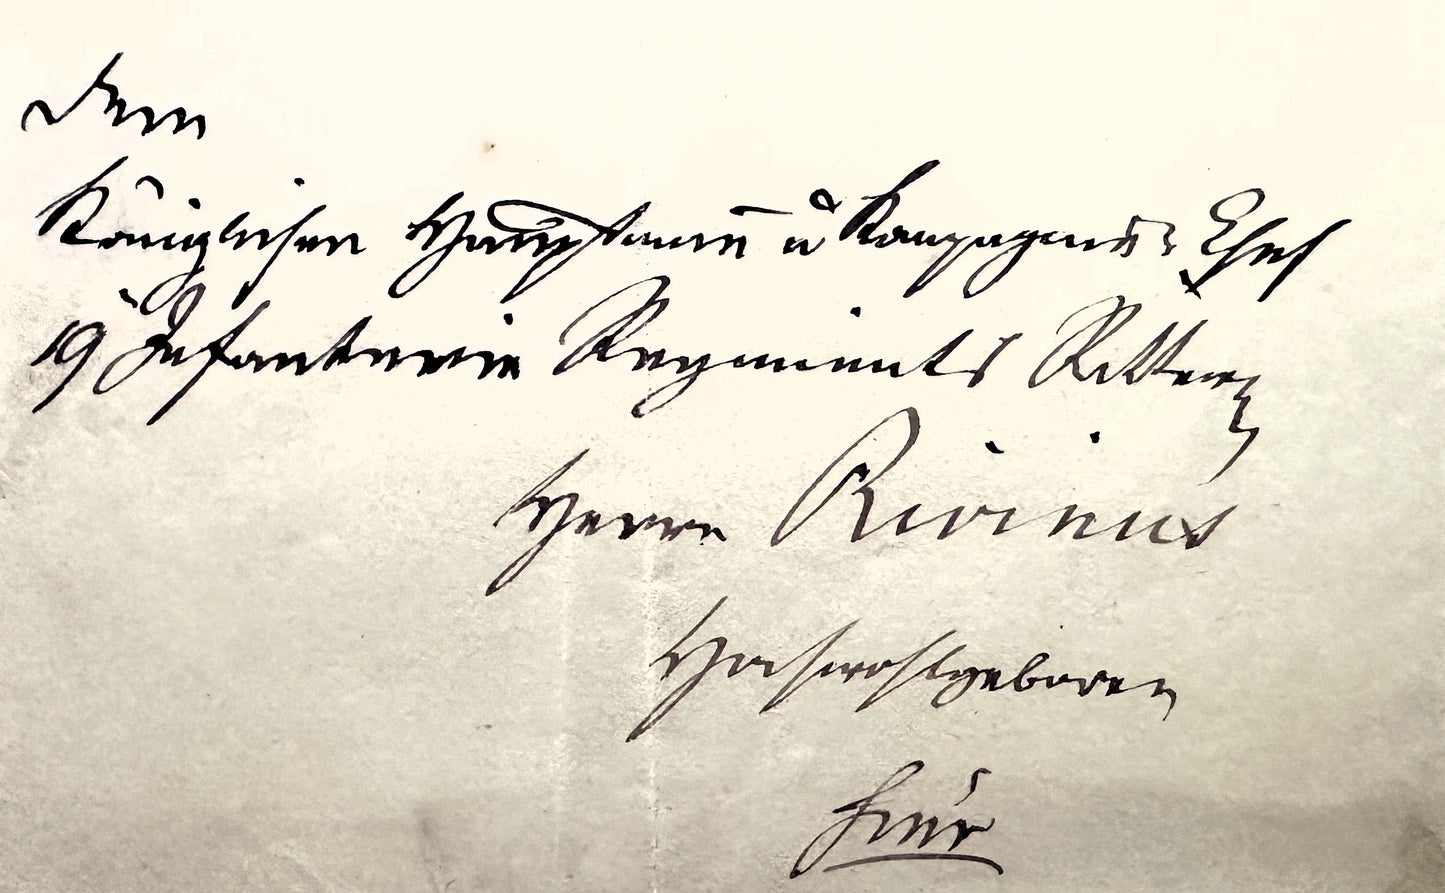 Dem
Königlichen Hauptmann u Kompagnie Chef
19 Infanterie Regiments Ritter
Herrn Rivinus
Hochwohlgeboren
hier